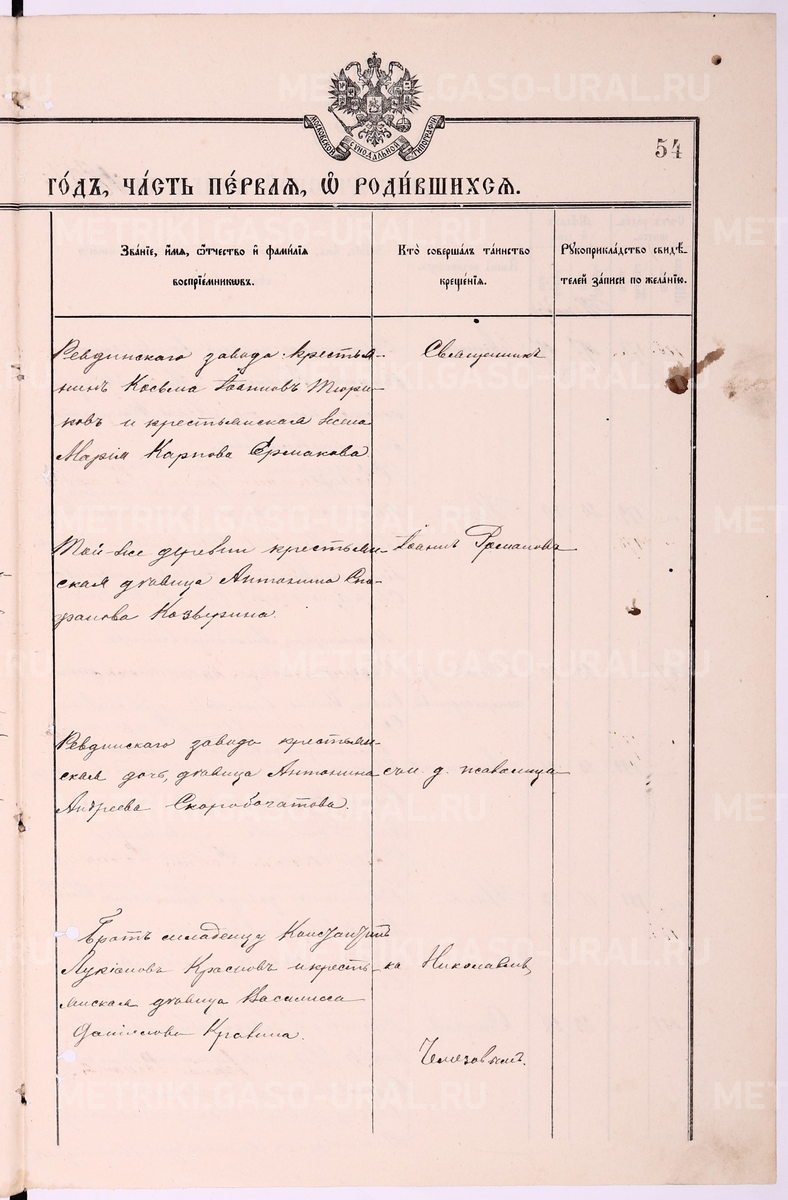 МОСКОВСКОЙ СѴНОДАЛЬНОЙ ТИПОГРАФІИ
54
ГО́ДЪ, ЧА́СТЬ ПЕ́РВАЯ, Ѡ҆ РОДИ́ВШИХСЯ.
Зва́нїе, и҆́мя, ѻ҆́тчество и҆ фами́лїя
воспрїе́мникѡвъ.
Кто̀ соверша́лъ та́инство
креще́нїя.
Рꙋкоприкла́дство свидѣ́-
телей за́писи по жела́нїю.
Ревдинскаго завода крестья-
нинъ Косьма Іоанновъ Тюри-
ковъ и крестьянская жена
Марія Карпова Ермакова
Священникъ
Той-же деревни крестьян-
ская дѣвица Антонина
Козырина.
Іоаннъ Романовъ
Ревдинскаго завода крестьян-
ская дочь, дѣвица Антонина
Андреева Скоробогатова.
съ и. д. псаломщи
Братъ младенцу Константинъ
Лукіановъ Красновъ и кресть-
янская дѣвица Василиса
Даніилова Кравина.
ка Николаемъ
Чемезовымъ.
METRIKI.GASO-URAL.RU